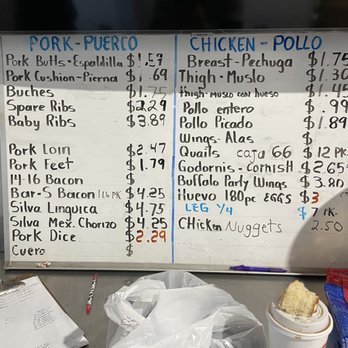 PORK - PUERCO
Pork Butts - Espaldilla $1.57
Pork Cushion - Pierna $1.69
Buches $1.75
Spare Ribs $2.29
Baby Ribs $3.89
Pork Loin $2.47
Pork Feet $1.79
14-16 Bacon $
Bar-S Bacon 1LB PK $4.25
Silva Linguica $4.75
Silva Mex. Chorizo $4.25
Pork Dice $2.29
Cuero $
CHICKEN - POLLO
Breast - Pechuga $1.75
Thigh - Muslo $1.30
Thigh - Muslo con hueso $1.45
Pollo entero $.99
Pollo Picado $1.89
Wings - Alas $
Quails caja 66 $12 PK.
Godornis - CORNISH $2.65
Buffalo Party Wings $3.80
Huevo 180pc EGGS $3
LEG 1/4 $
CHicken Nuggets 2.50